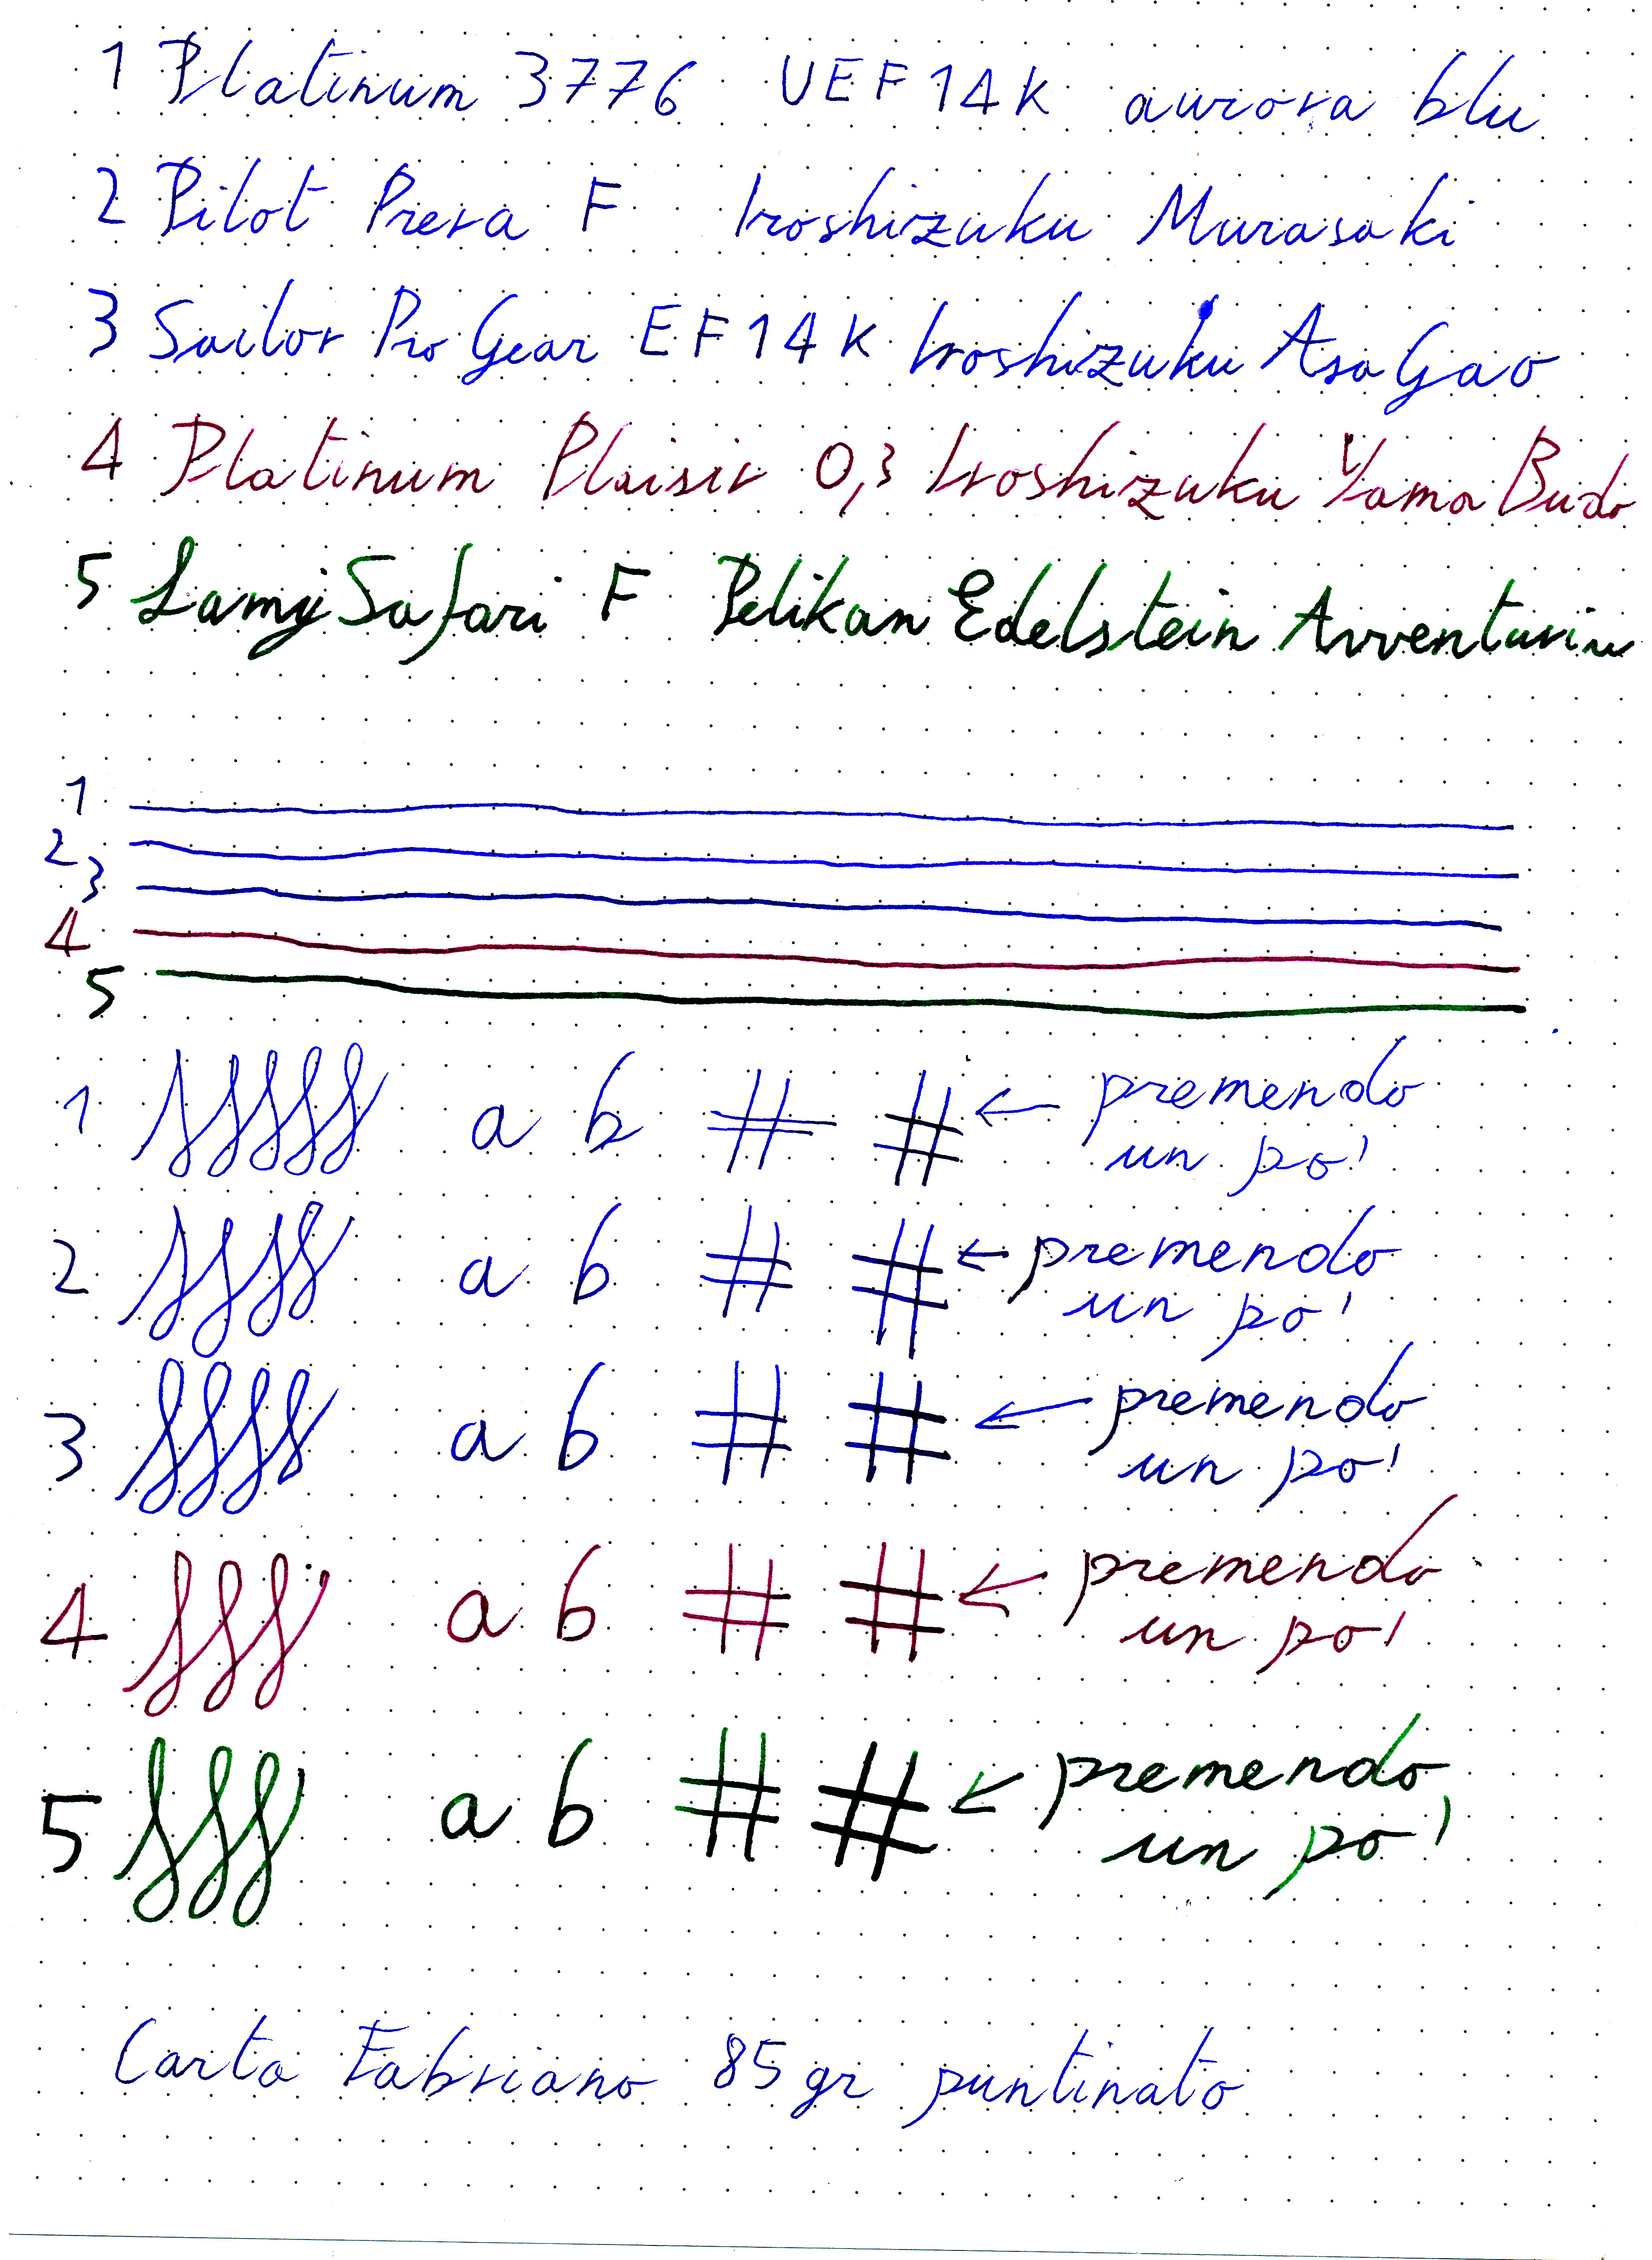 1 Platinum 3776 UEF 14K aurora blu
2 Pilot Prera F Iroshizuku Murasaki
3 Sailor Pro Gear EF 14K Iroshizuku Asa Gao
4 Platinum Plaisir 0,3 Iroshizuku Yama Budo
5 Lamy Safari F Pelikan Edelstein Avventurin
1
2
3
4
5
1 a b # # ← premendo
un po'
2 a b # # ← premendo
un po'
3 a b # # ← premendo
un po'
4 a b # # ← premendo
un po'
5 a b # # ← premendo
un po'
Carta Fabriano 85 gr puntinato